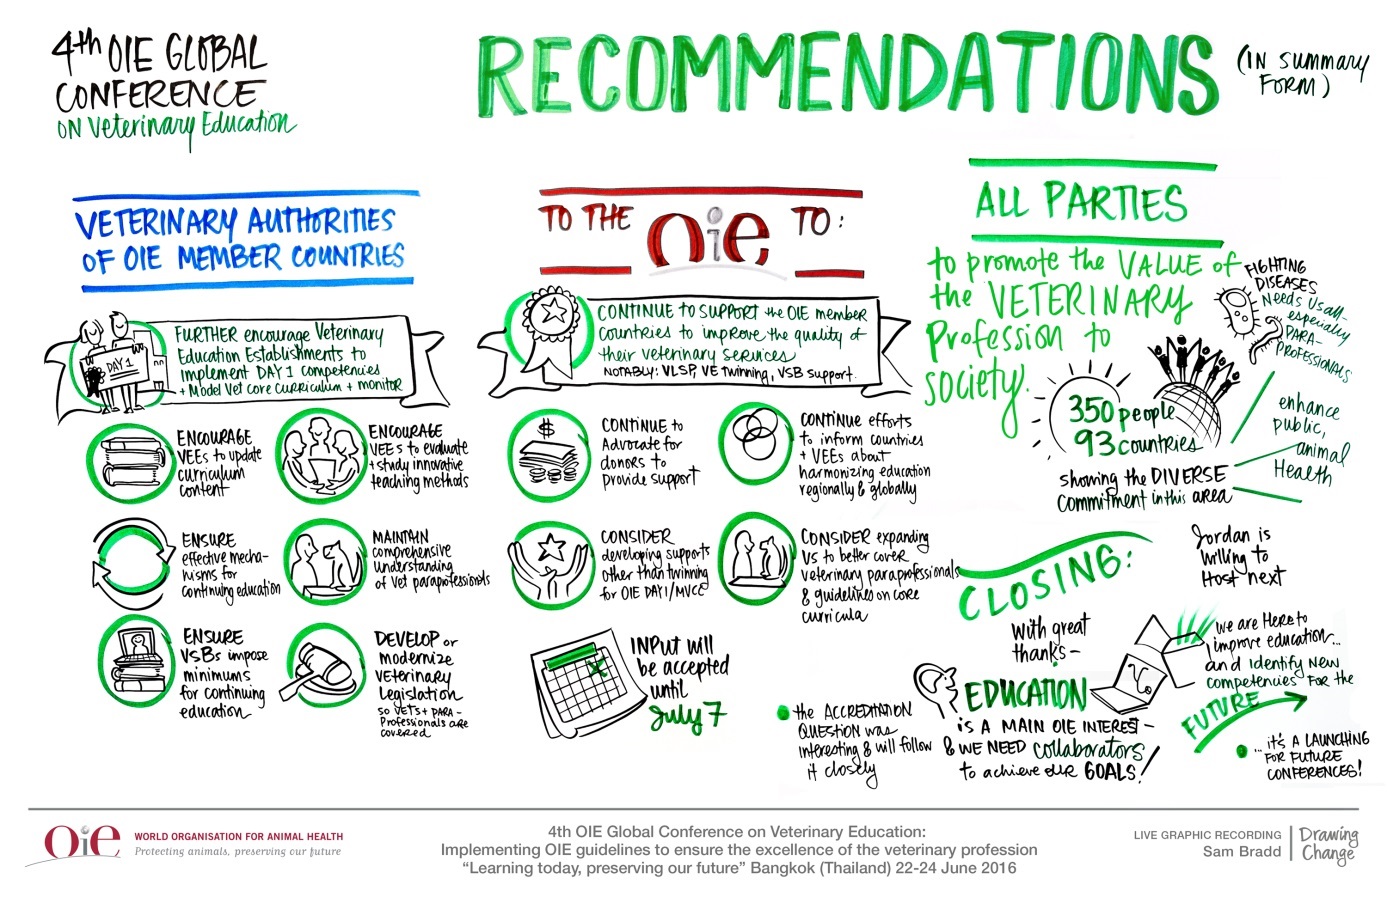 4th OIE GLOBAL
CONFERENCE
ON Veterinary Education
RECOMMENDATIONS
(IN SUMMARY
FORM)
VETERINARY AUTHORITIES
OF OIE MEMBER COUNTRIES
DAY 1
FURTHER encourage Veterinary
Education Establishments to
implement DAY 1 competencies
+ Model Vet core curriculum + monitor
ENCOURAGE
VEEs to update
curriculum
content
ENCOURAGE
VEEs to evaluate
+ study innovative
teaching methods
ENSURE
effective mecha-
nisms for
continuing education
MAINTAIN
comprehensive
understanding
of vet paraprofessionals
ENSURE
VSBs impose
minimums
for continuing
education
DEVELOP or
modernize
veterinary
legislation
so VETs + PARA-
Professionals are
covered
TO THE OIE TO:
CONTINUE TO SUPPORT the OIE member
Countries to improve the quality of
their veterinary services
NOTABLY: VLSP, VE twinning, VSB support.
$
CONTINUE to
Advocate for
donors to
provide support
CONTINUE efforts
to inform countries
+ VEEs about
harmonizing education
regionally & globally
CONSIDER
developing supports
other than twinning
for OIE DAY1/MVCC
CONSIDER expanding
VS to better cover
veterinary paraprofessionals
& guidelines on core
curricula
INPUT will
be accepted
until
July 7
ALL PARTIES
to promote the VALUE of
the VETERINARY
Profession to
society.
FIGHTING
DISEASES
Needs us all-
especially
PARA-
PROFESSIONALS
350 people
93 countries
showing the DIVERSE
commitment in this area
enhance
public,
animal
Health
CLOSING:
Jordan is
willing to
Host next
With great
thanks-
EDUCATION
is A MAIN OIE INTEREST -
& WE NEED collaborators
to achieve our GOALS!
the ACCREDITATION
QUESTION was
interesting & will follow
it closely
we are Here to
improve education...
and identify NEW
competencies FOR the
FUTURE
...it's A LAUNCHING
FOR FUTURE
CONFERENCES!
OIE
WORLD ORGANISATION FOR ANIMAL HEALTH
Protecting animals, preserving our future
4th OIE Global Conference on Veterinary Education:
Implementing OIE guidelines to ensure the excellence of the veterinary profession
“Learning today, preserving our future” Bangkok (Thailand) 22-24 June 2016
LIVE GRAPHIC RECORDING
Sam Bradd
Drawing
Change